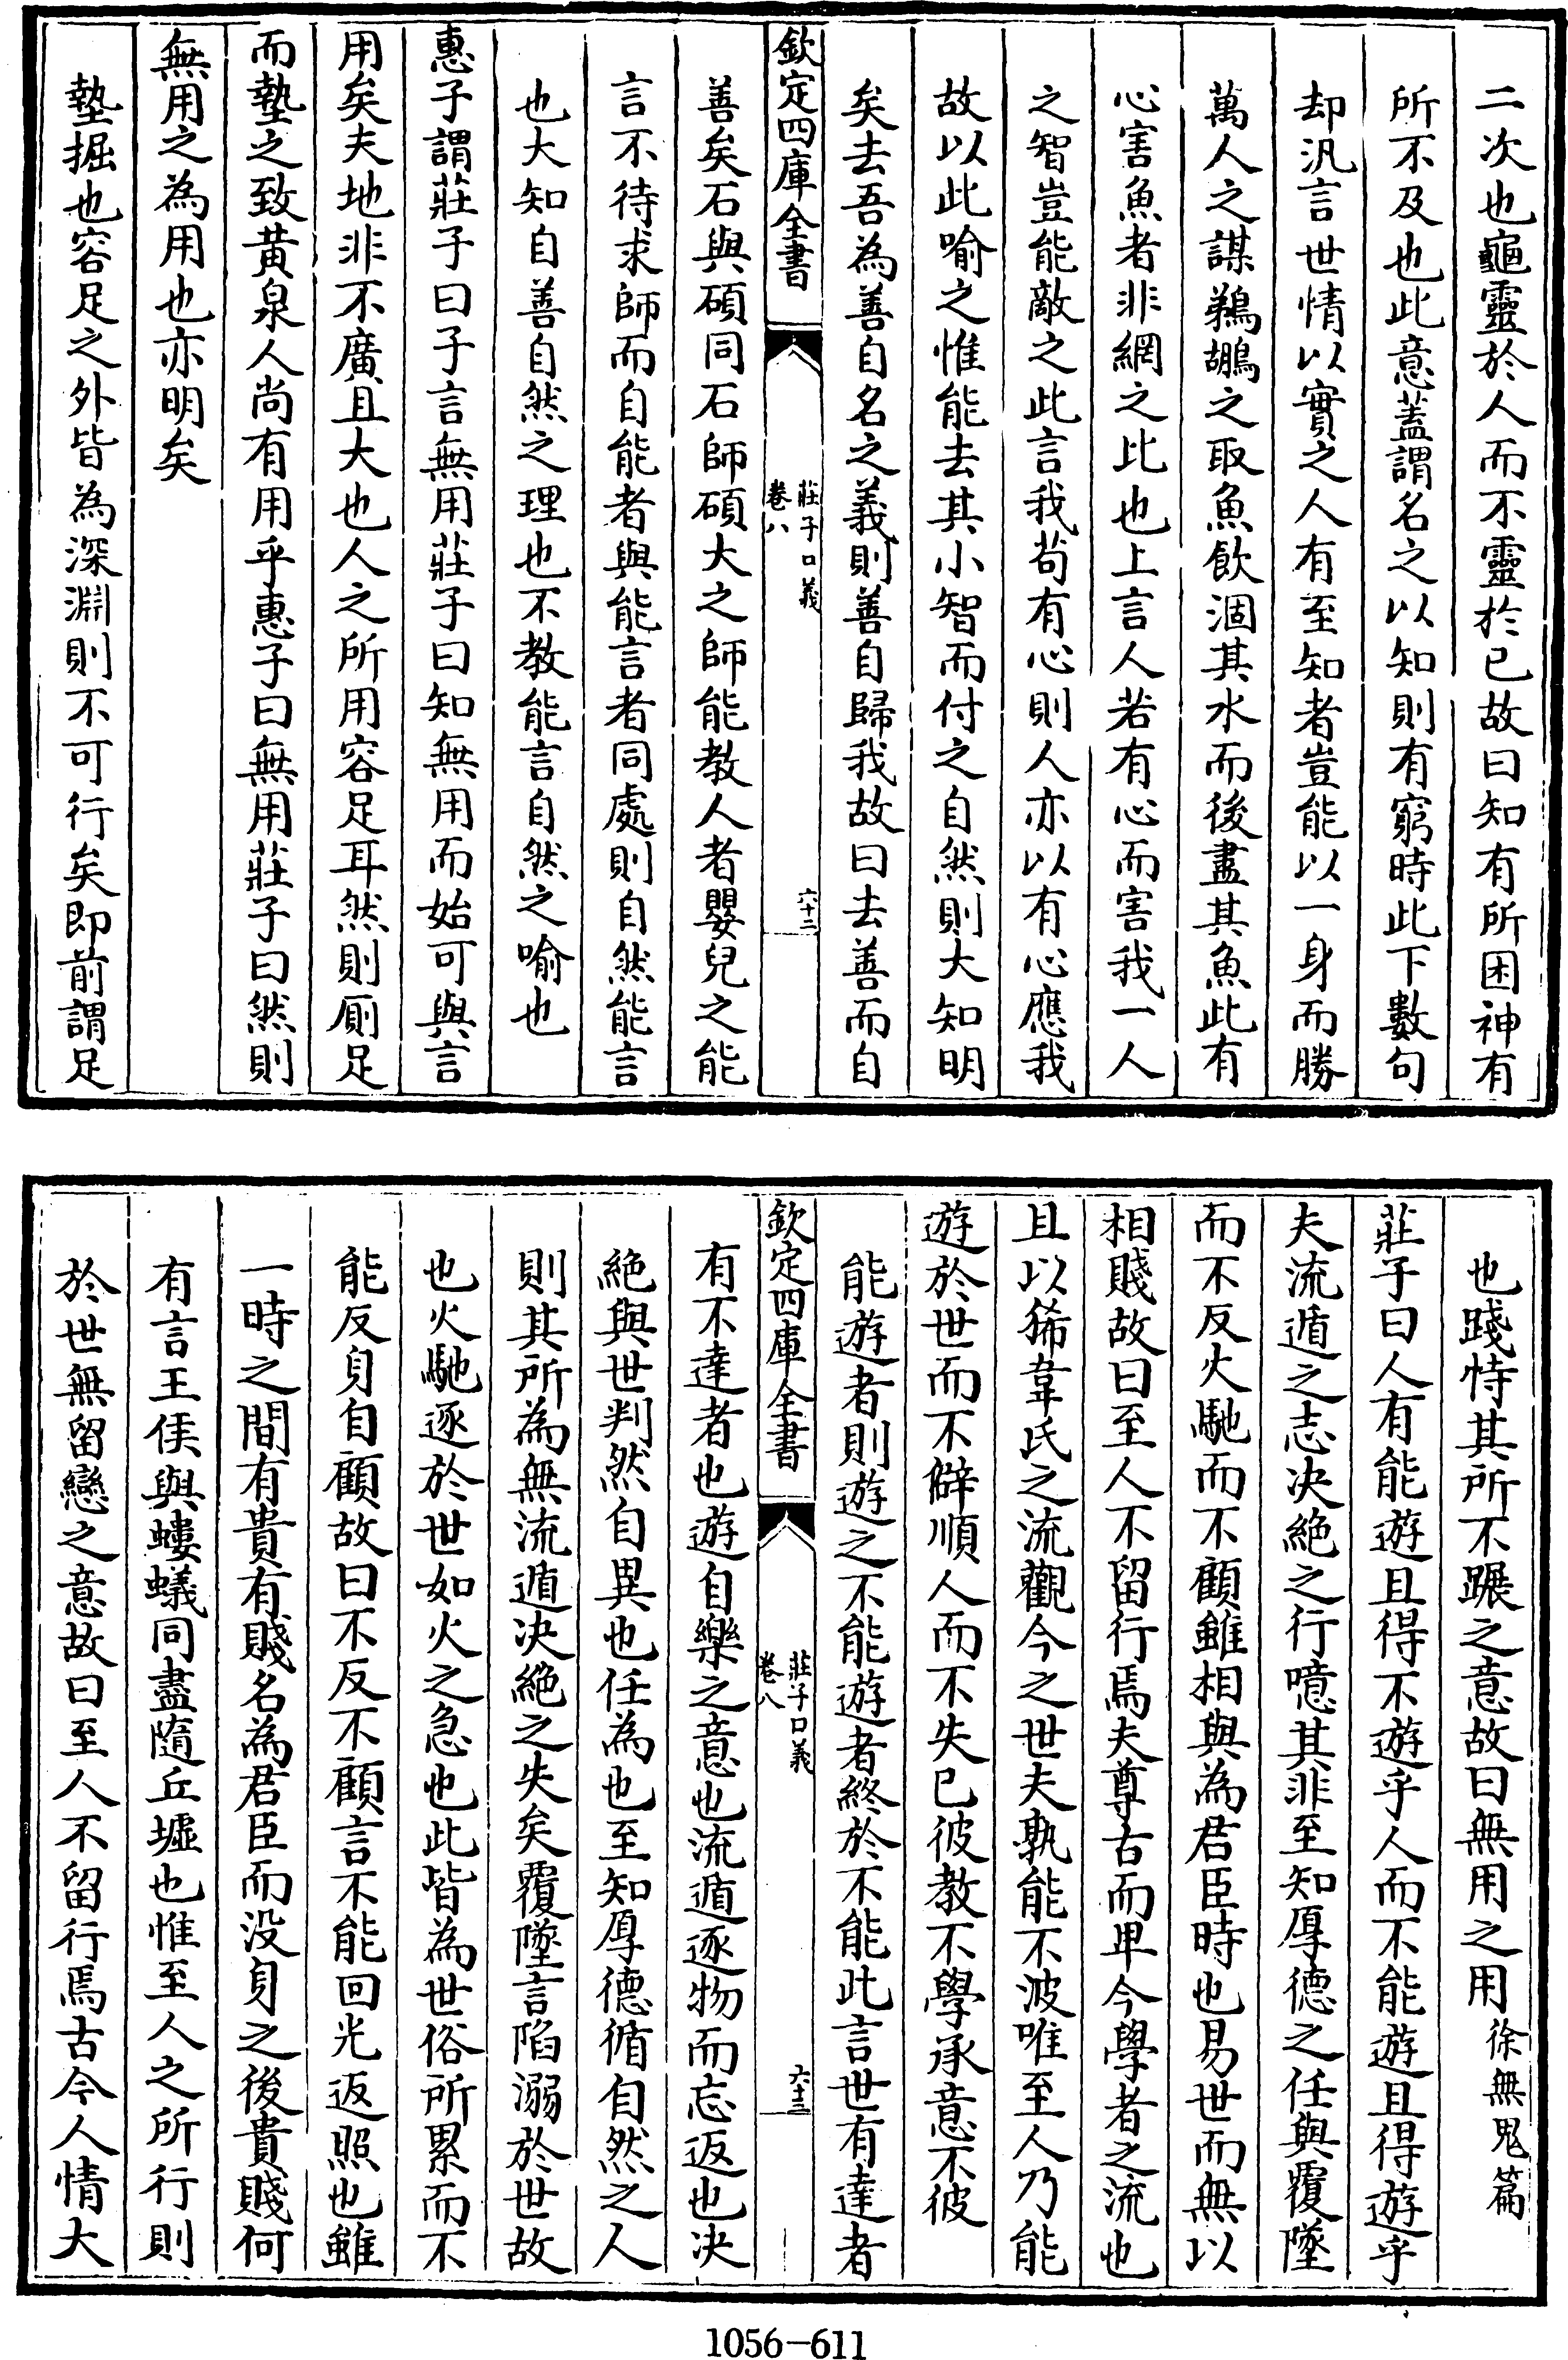 二次也龜靈於人而不靈於已故曰知有所困神有
所不及也此意蓋謂名之以知則有窮時此下數句
却汎言世情以實之人有至知者豈能以一身而勝
萬人之謀鵜鶘之取魚飲涸其水而後盡其魚此有
心害魚者非網之比也上言人若有心而害我一人
之智豈能敵之此言我苟有心則人亦以有心應我
故以此喻之惟能去其小智而付之自然則大知明
矣去吾為善自名之義則善自歸我故曰去善而自
欽定四庫全書
莊子口義
卷八
六十二
善矣石與碩同石師碩大之師能教人者嬰兒之能
言不待求師而自能者與能言者同處則自然能言
也大知自善自然之理也不教能言自然之喻也
惠子謂莊子曰子言無用莊子曰知無用而始可與言
用矣夫地非不廣且大也人之所用容足耳然則廁足
而墊之致黄泉人尚有用乎惠子曰無用莊子曰然則
無用之為用也亦明矣
墊掘也容足之外皆為深淵則不可行矣即前謂足
也踐恃其所不蹍之意故曰無用之用徐無鬼篇
莊子曰人有能遊且得不遊乎人而不能遊且得遊乎
夫流遁之志决絶之行噫其非至知厚德之任與覆墜
而不反火馳而不顧雖相與為君臣時也易世而無以
相賤故曰至人不留行焉夫尊古而卑今學者之流也
且以狶韋氏之流觀今之世夫孰能不波唯至人乃能
遊於世而不僻順人而不失已彼教不學承意不彼
能遊者則遊之不能遊者終於不能此言世有達者
欽定四庫全書
莊子口義
卷八
六十三
有不達者也遊自樂之意也流遁逐物而忘返也决
絶與世判然自異也任為也至知厚德循自然之人
則其所為無流遁决絶之失矣覆墜言陷溺於世故
也火馳逐於世如火之急也此皆為世俗所累而不
能反身自顧故曰不反不顧言不能回光返照也雖
一時之間有貴有賤名為君臣而没身之後貴賤何
有言王侯與螻蟻同盡隨丘墟也惟至人之所行則
於世無留戀之意故曰至人不留行焉古今人情大
1056-611